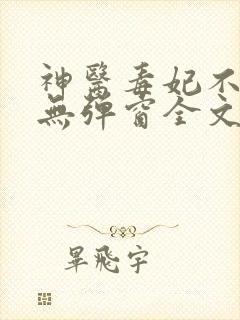 神醫毒妃不
無彈窗全文
畢飛宇